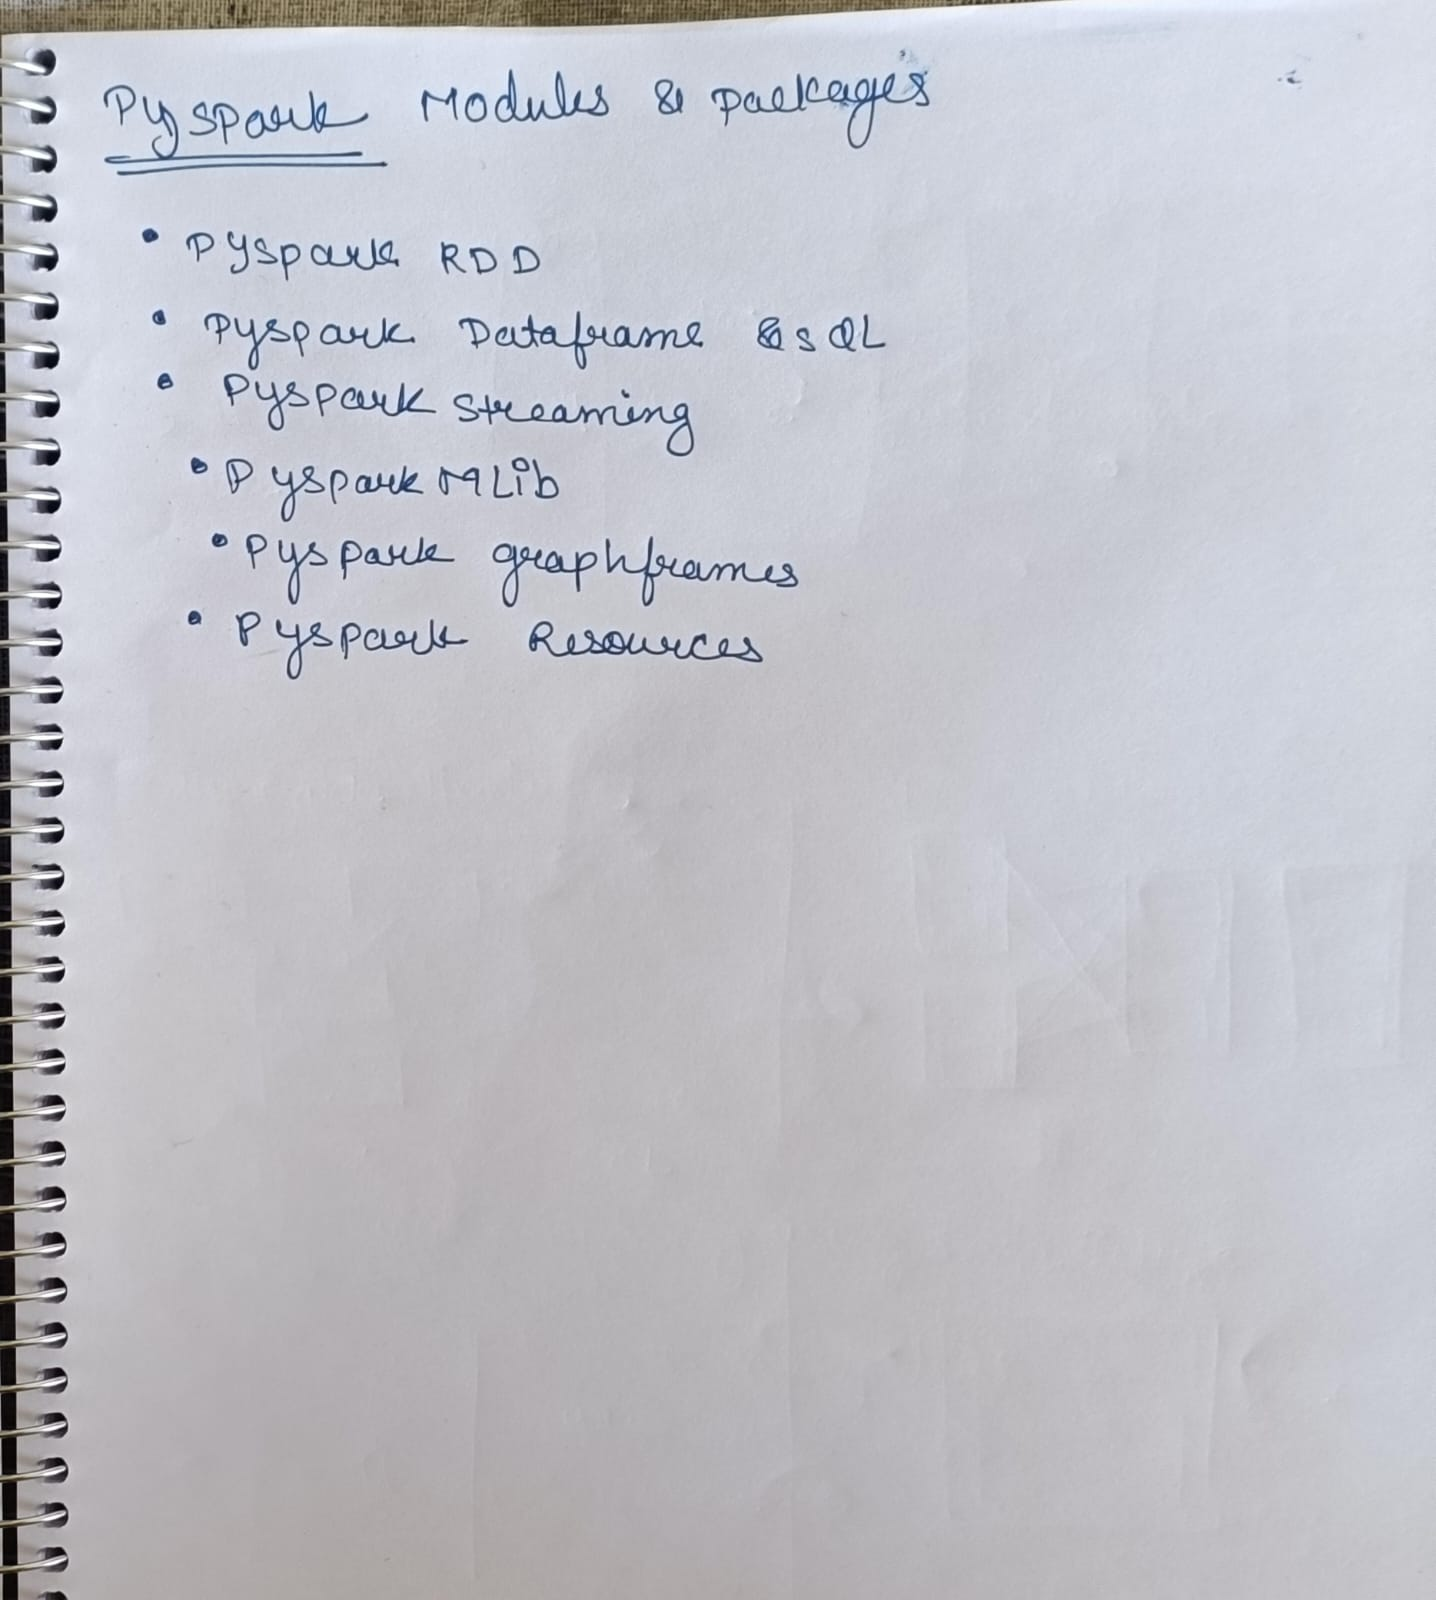 Pyspark Modules & packages
• Pyspark RDD
• Pyspark Dataframe & SQL
• Pyspark streaming
• Pyspark MLib
• Pyspark graphframes
• Pyspark Resources